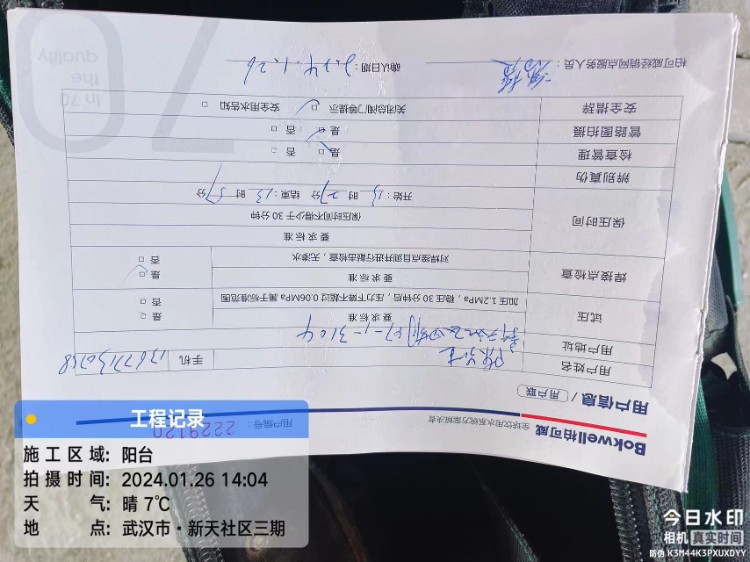 Bokwell柏可威
全球饮用水系统方案解决者
用户信息 / 用户联
用户编号: 2229120
用户姓名
手机
用户地址
试压
要求标准
加压1.2MPa,稳压30分钟后,压力下降不超过0.06MPa属于标准范围
是
否
焊接点检查
要求标准
对焊接点目测并进行敲击检查,无渗水
是
否
保压时间
要求标准
保压时间不得少于30分钟
开始: 13 时 27 分 结束: 13 时 57 分
辨别真伪
检查管理
是 否
管路图拍摄
是 否
安全措辞
关闭总阀门等提示 安全用水告知
柏可威经销网点服务人员:
确认日期: 2024.1.26
In 70
the
quality
70
工程记录
施工区域: 阳台
拍摄时间: 2024.01.26 14:04
天气: 晴 7℃
地点: 武汉市·新天社区三期
今日水印
相机 真实时间
防伪 K3M44K3PXUXDYY